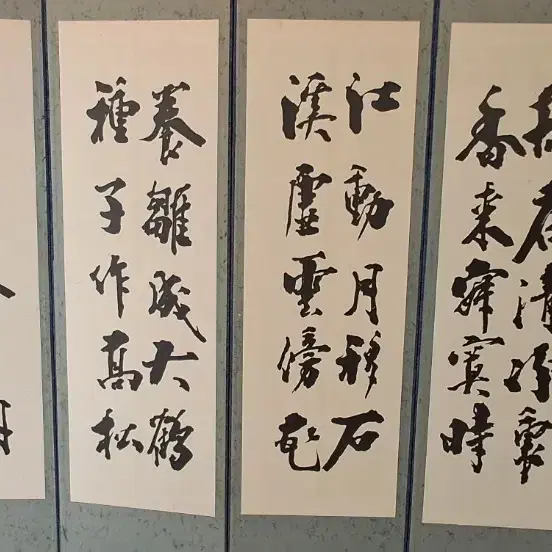 清
香來寂寞時
江動月移石
溪虛雲傍花
養雛成大鶴
種子作高松